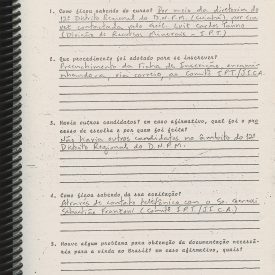 1. Como ficou sabendo do curso? Por meio da diretoria do
12º Distrito Regional do D.N.P.M. (Cuiabá), por sua
vez contactada pelo Geól. Luiz Carlos Tanno
(Divisão de Recursos Minerais - I.P.T.)
2. Que procedimento foi adotado para se inscrever?
Preenchimento da Ficha de Inscrição encami-
nhando-a, via correio, ao Comitê I.P.T./JI.C.A.
3. Havia outros candidatos? em caso afirmativo, qual foi o pro
cesso de escolha e por quem foi feito?
Não havia outros candidatos no âmbito do 12º
Distrito Regional do D.N.P.M.
4. Como ficou sabendo da sua aceitação?
Através de contato telefônico com o Sr.
Sebastião (Comitê I.P.T./JI.C.A.)
5. Houve algum problema para obtenção da documentação necessá-
ria para a vinda ao Brasil? em caso afirmativo, quais?